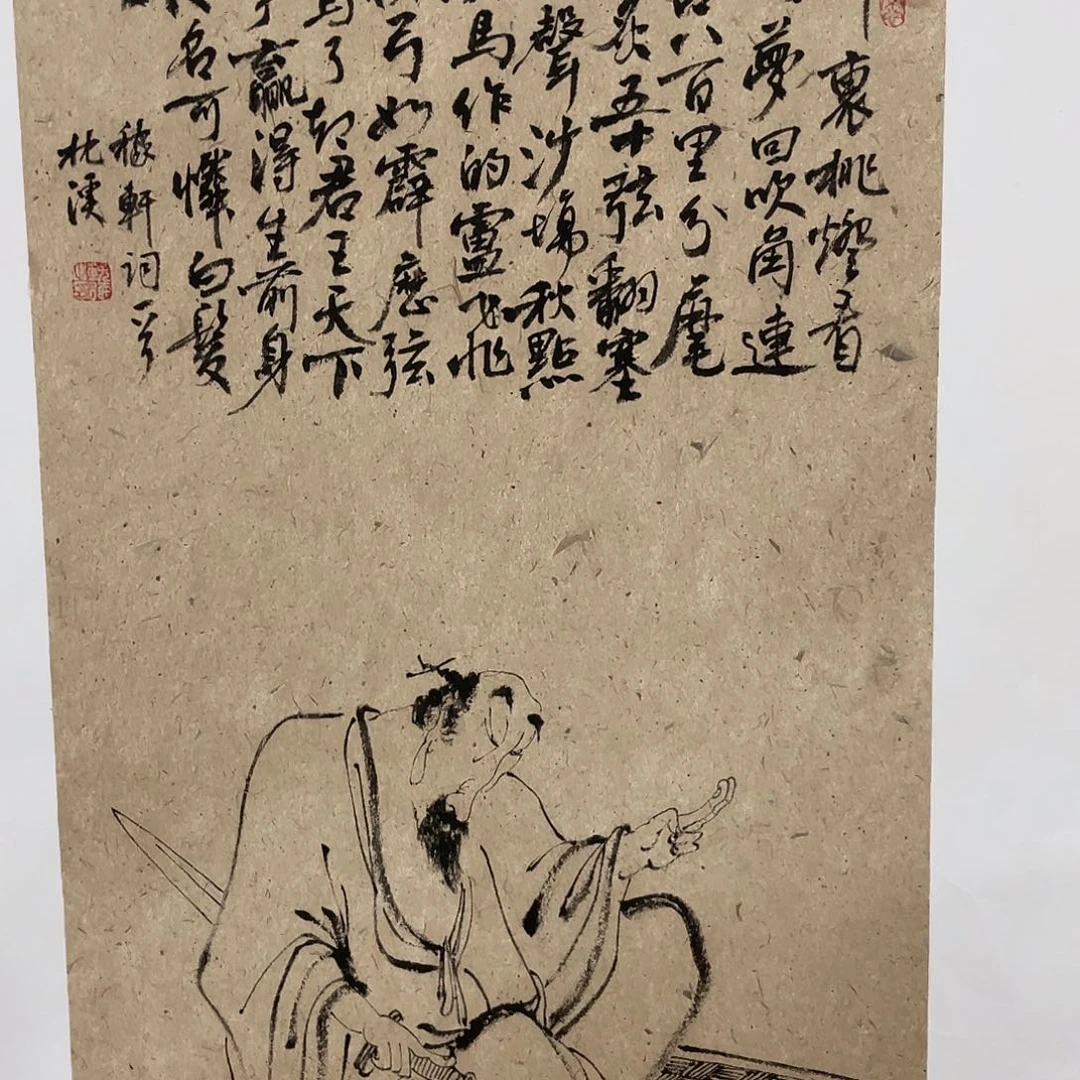 裏挑燈看
夢回吹角連
八百里分麾
炙五十弦翻塞
聲沙場秋點
馬作的盧飛快
弓如霹靂弦
了却君王天下
贏得生前身
名可憐白髮
稼軒詞一首
枕溪